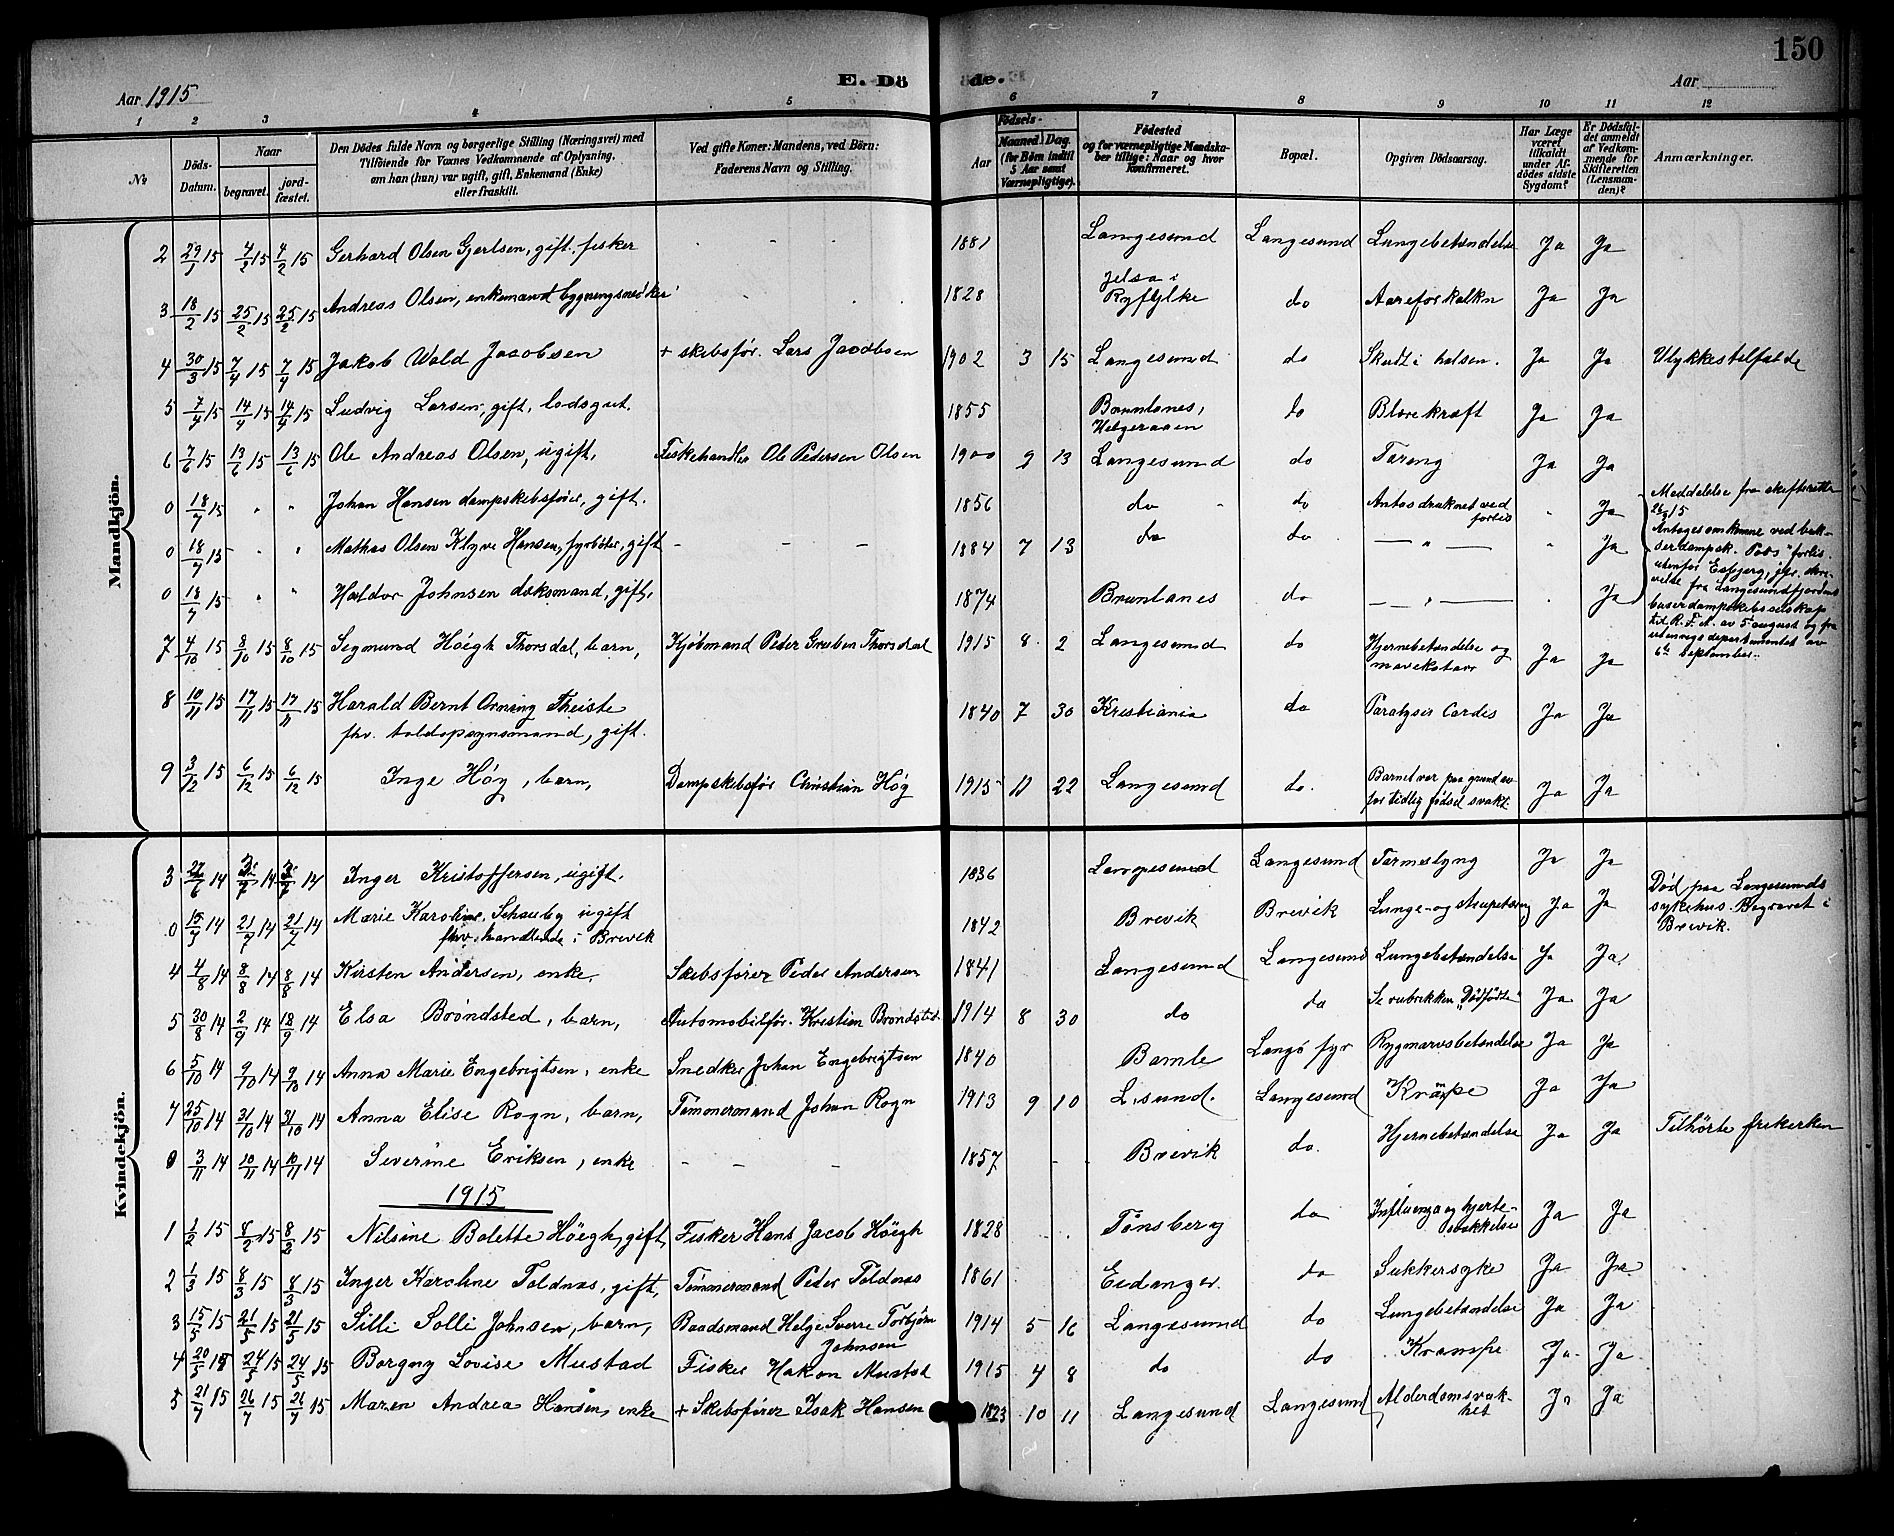 150
E. Dö de.
Aar 1915 Aar
1 2 3 4 5 6 7 8 9 10 11 12
№ Döds-Datum. Naar begravet. jordfæstet. Den Dödes fulde Navn og borgerlige Stilling (Næringsvei) med Tilföiende for Voxnes Vedkommende af Oplysning, om han (hun) var ugift, gift, Enkemand (Enke) eller fraskilt. Ved gifte Koner: Mandens, ved Börn: Faderens Navn og Stilling. Födsels- Aar Maaned. Dag. (for Börn indtil 5 Aar samt Værnepligtige). Födested og for værnepligtige Mandskaber tillige: Naar og hvor konfirmeret. Bopæl. Opgiven Dödsaarsag. Har Læge været tilkaldt under Afdödes sidste Sygdom? Er Dödsfaldet anmeldt af Vedkommende for Skifteretten (Lensmanden)? Anmærkninger.
Mandkjön.
2 29/1 15 4/2 15 4/2 15 Gerhard Olsen Gjertsen, gift. fisker - - 1881 Langesund Langesund Lungebetændelse Ja Ja
3 18/2 15 25/2 15 25/2 15 Andreas Olsen, enkemand bygningssnedker 1828 Jelsa i
Ryfylke do Aareforkalkn Ja Ja
4 30/3 15 7/4 15 7/4 15 Jakob Wold Jacobsen + skibsfør. Lars Jacobsen 1902 3 15 Langesund do Skudt i halsen. Ja Ja Ulykkestilfælde
5 7/4 15 14/4 15 14/4 15 Ludvig Larsen, gift, lodsgut. 1855 Brunlanes,
Helgeraaen do Blærekræft Ja Ja
6 7/6 15 13/6 15 13/6 15 Ole Andreas Olsen, ugift, Fiskehandler Ole Pedersen Olsen 1900 9 13 Langesund do Tæring Ja Ja
0 18/7 15 " " Johan Hansen dampskibsfører, gift. 1856 do do Antas druknet ved
forlis " Ja Meddelelse fra skifteretten
0 18/7 15 " " Mathas Olsen Klyve Hansen, fyrbøter, gift - - - 1884 7 13 do do — " — " Ja
0 18/7 15 " " Haldor Johnsen dæksmand, gift, 1874 Brunlanes do — " — Ja
Antages omkomne ved buk-
serdampsk. "Pods" forlis
utenfor Esbjerg, jfr. skri-
velse fra Langesundfjordens
buserdampskibsselskap
til R. F. A. av 5 august og fra
utenrigsdepartementet av
6te september.
7 4/10 15 8/10 15 8/10 15 Sigmund Höegh Thorsdal, barn, Kjøbmand Peder Gruben Thorsdal 1915 8 2 Langesund do Hjernebetændelse og
mavekatarr Ja Ja
8 10/11 15 17/11 15 17/11 15 Harald Bernt Orning Theiste
fhv. toldopsynsmand, gift. 1840 7 30 Kristiania do Paralysis Cordis Ja Ja
9 3/12 15 6/12 15 6/12 15 Inge Høg, barn, Dampskibsfør Christian Høg 1915 11 22 Langesund do. Barnet var paa grund av
for tidlig fødsel svakt. Ja Ja
Kvindekjön.
3 14 14 14 Inger Kristoffersen, ugift. 1836 Langesund Langesund Tarmslyng Ja Ja
0 15/7 14 21/7 14 21/7 14 Marie Karoline Schauby ugift
fhv. handlende i Brevik 1842 Brevik Brevik Lunge- og strupetæring Ja Ja Død paa Langesunds
sykehus. Begravet i
Brevik.
4 4/8 14 8/8 14 8/8 14 Kirsten Andersen, enke, Skibsfører Peder Andersen 1841 Langesund Langesund Lungebetændelse Ja Ja
5 30/8 14 2/9 14 18/9 14 Elsa Brøndsted, barn, Automobilfør. Kristian Brøndsted 1914 8 30 do do Se rubrikken "Dødfødte" Ja Ja
6 5/10 14 9/10 14 9/10 14 Anna Marie Engebrigtsen, enke Snedker Johan Engebrigtsen 1840 Bamle Langø fyr Rygmarvsbetændelse Ja Ja
7 25/10 14 31/10 14 31/10 14 Anna Elise Rogn, barn, Tømmermand Johan Rogn 1913 9 10 L.sund. Langesund Krampe Ja Ja
0 3/11 14 10/11 14 10/11 14 Severine Eriksen, enke - - - 1857 - - Brevik do. Hjernebetændelse Ja Ja Tilhørte frikirken
1915
1 1/2 15 8/2 15 8/2 15 Nilsine Bolette Höegh, gift, Fisker Hans Jacob Höegh 1828 Tønsberg do Influenza og hjerte-
svækkelse Ja Ja
2 1/3 15 8/3 15 8/3 15 Inger Karoline Toldnæs, gift, Tømmermand Peder Toldnæs 1861 Eidanger. do Sukkersyke Ja Ja
3 15/5 15 21/5 15 21/5 15 Silli Solli Johnsen, barn, Baadsmand Helge Sverre Torbjørn
Johnsen 1914 5 16 Langesund do Lungebetændelse Ja Ja
4 20/5 15 24/5 15 24/5 15 Borgny Lovise Mustad Fisker Hakon Mustad 1915 4 8 do do Krampe Ja Ja
5 21/7 15 26/7 15 26/7 15 Maren Andrea Hansen, enke + Skibsfører Isak Hansen 1823 10 11 Langesund Langesund Alderdomsvak-
het Ja Ja